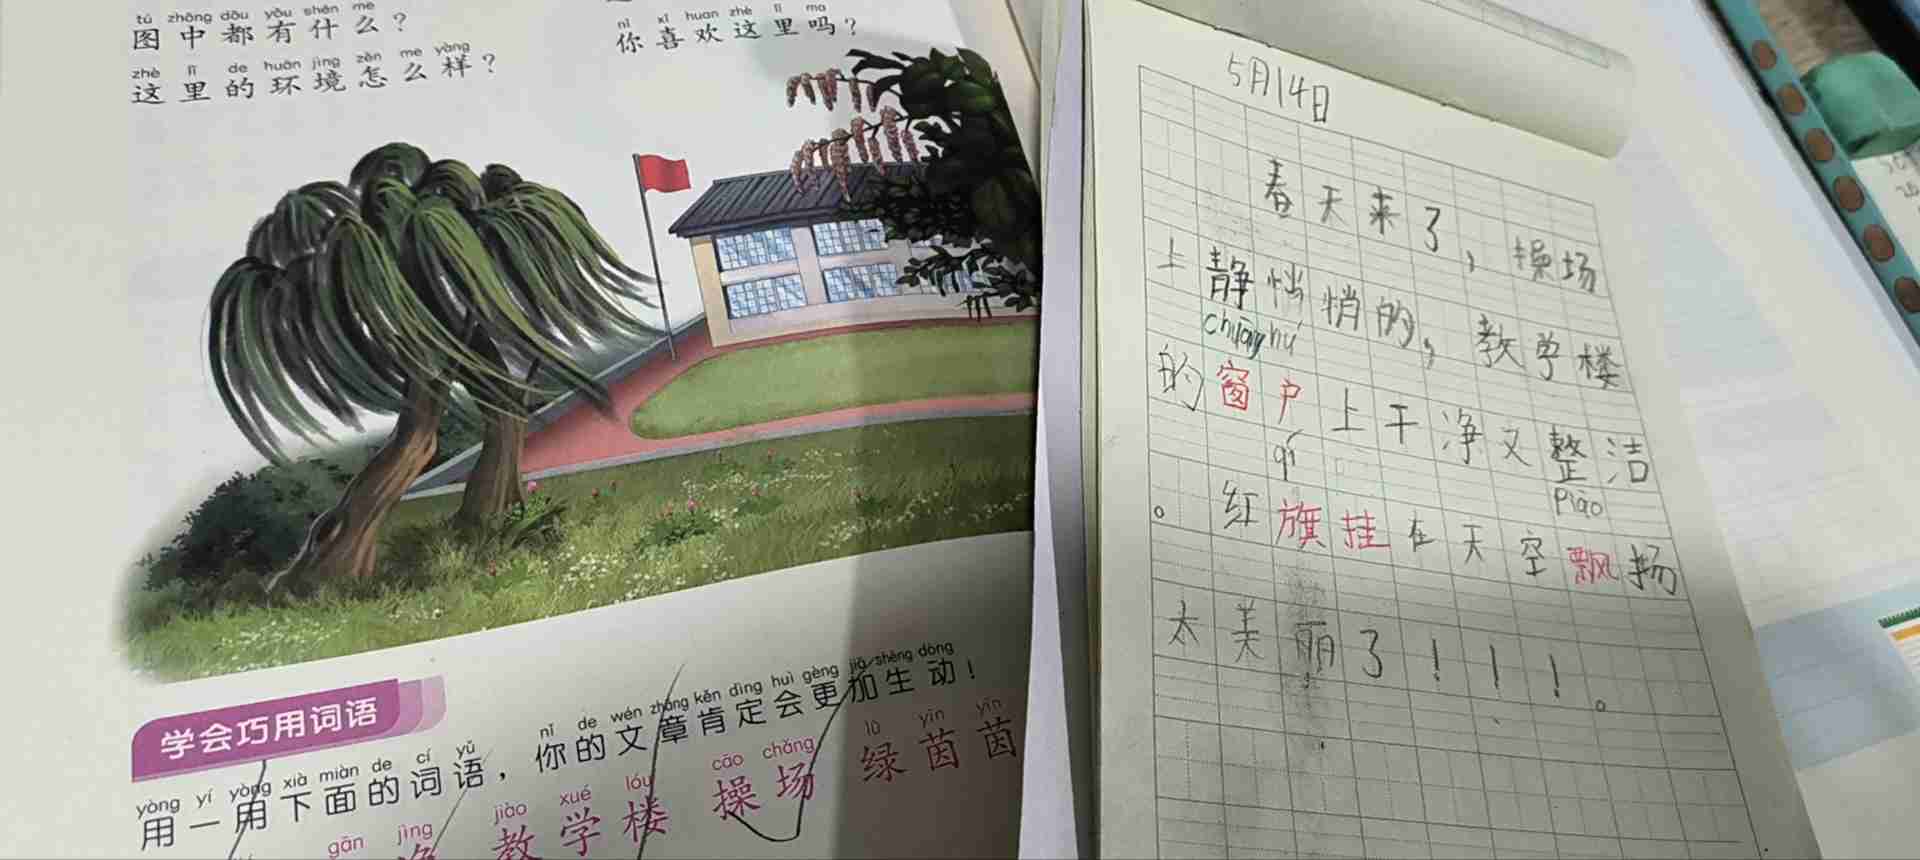 tú zhōng dōu yǒu shén me
图中都有什么？
zhè lǐ de huán jìng zěn me yàng
这里的环境怎么样？
nǐ xǐ huan zhè lǐ ma
你喜欢这里吗？
学会巧用词语
yòng yí yòng xià miàn de cí yǔ
用一用下面的词语，
nǐ de wén zhāng kěn dìng huì gèng jiā shēng dòng
你的文章肯定会更加生动！
gān jìng
净
jiào xué lóu
教学楼
cāo chǎng
操场
lǜ yīn yīn
绿茵茵
5月14日
春天来了，操场
上静悄悄的，教学楼
chuāng hú
的窗户上干净又整洁
qí piāo
。红旗挂在天空飘扬
太美丽了！！！。